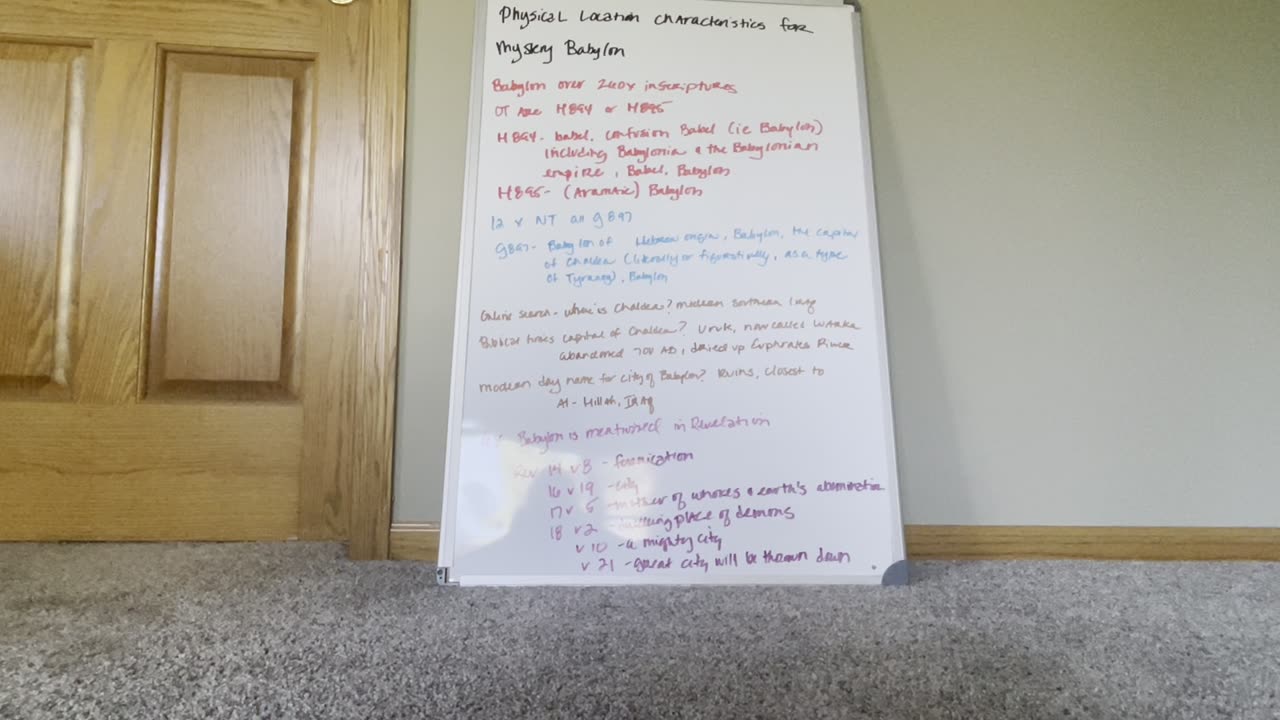 Physical Location characteristics for
Mystery Babylon
Babylon over 260x in scriptures
OT are H894 or H895
H894- babel, confusion Babel (ie Babylon)
including Babylonia & the Babylonian
empire, Babel, Babylon
H895- (Aramaic) Babylon
12 x NT all G897
G897- Babylon of Hebrew origin, Babylon, the capital
of Chaldea (literally or figuratively, as a type
of Tyranny), Babylon
Online search - where is Chaldea? modern southern Iraq
Biblical times capital of Chaldea? Uruk, now called Warka
abandoned 700 AD, dried up Euphrates River
modern day name for city of Babylon? Ruins, closest to
Al-Hillah, IRAq
Babylon is mentioned in Revelation
Rev 14 v 8 - fornication
16 v 19 - city
17 v 5 - mother of whores & earth's abomination
18 v 2 - dwelling place of demons
v 10 - a mighty city
v 21 - great city will be thrown down